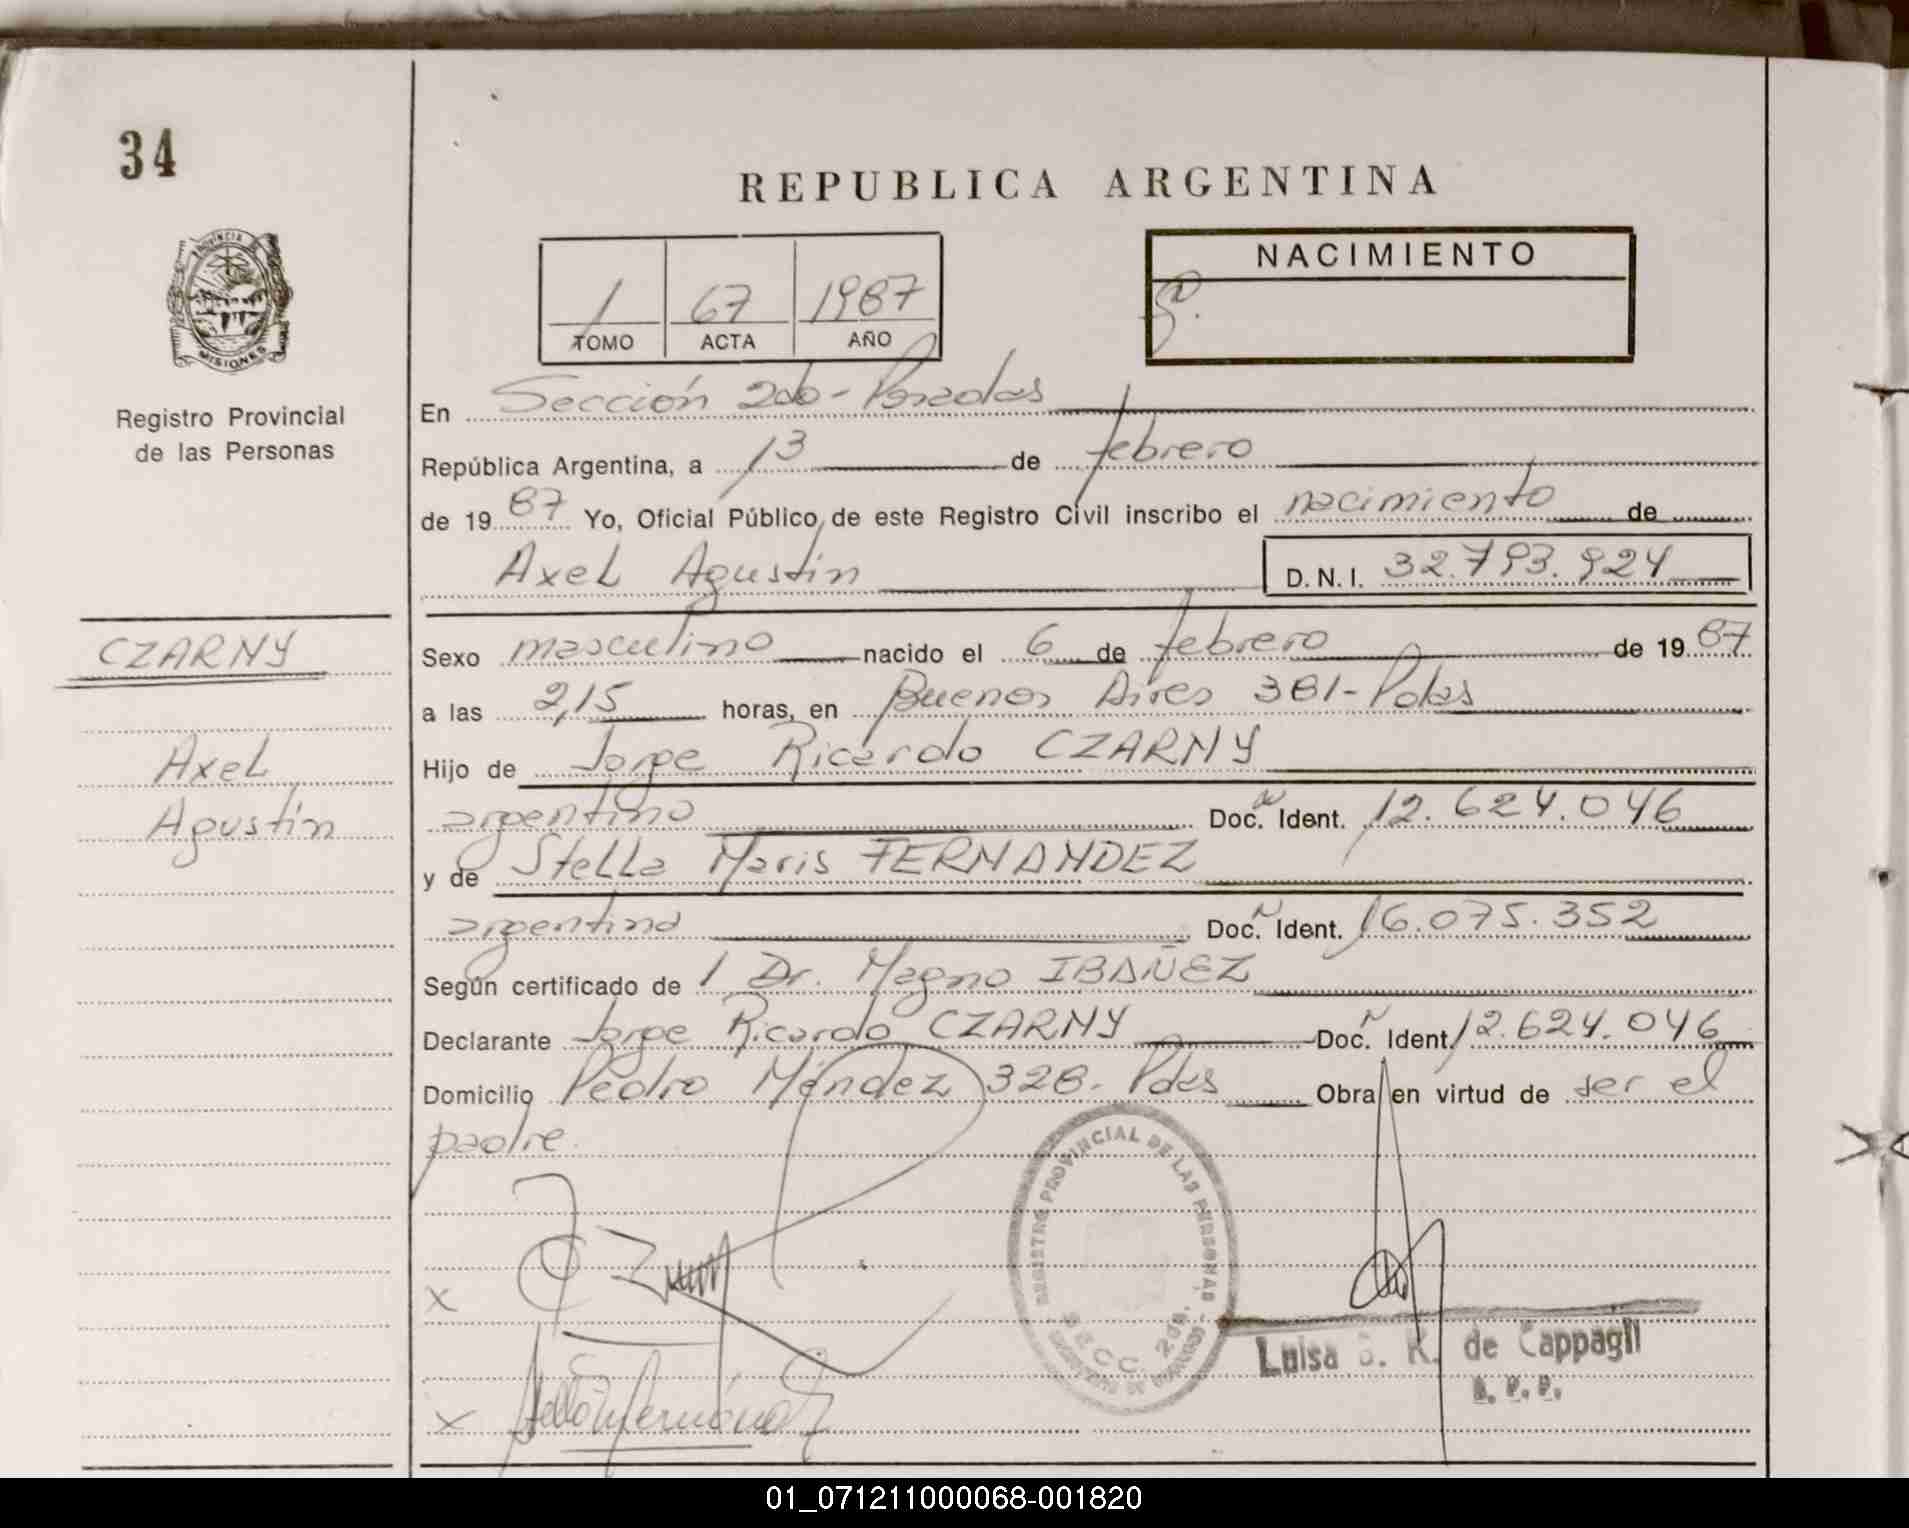 34
REPUBLICA ARGENTINA
PROVINCIA DE
MISIONES
Registro Provincial
de las Personas
1 67 1987
TOMO ACTA AÑO
NACIMIENTO
En Sección 2da - Posadas
República Argentina, a 13 de febrero
de 19 87 Yo, Oficial Público, de este Registro Civil inscribo el nacimiento de
Axel Agustín D.N.I. 32.793.924
CZARNY
Axel
Agustín
Sexo masculino nacido el 6 de febrero de 19 87
a las 2,15 horas, en Buenos Aires 381 - Pdas
Hijo de Jorge Ricardo CZARNY
argentino Doc. Ident. 12.624.046
y de Stella Maris FERNANDEZ
argentina Doc. Ident. 16.075.352
Según certificado de 1 Dr. Magno IBAÑEZ
Declarante Jorge Ricardo CZARNY Doc. Ident. 12.624.046
Domicilio Pedro Méndez 328. Pdas Obra en virtud de ser el
padre.
REGISTRO PROVINCIAL DE LAS PERSONAS
SECC. 2da.
x
x
Luisa S. K. de Cappagli
01_071211000068-001820